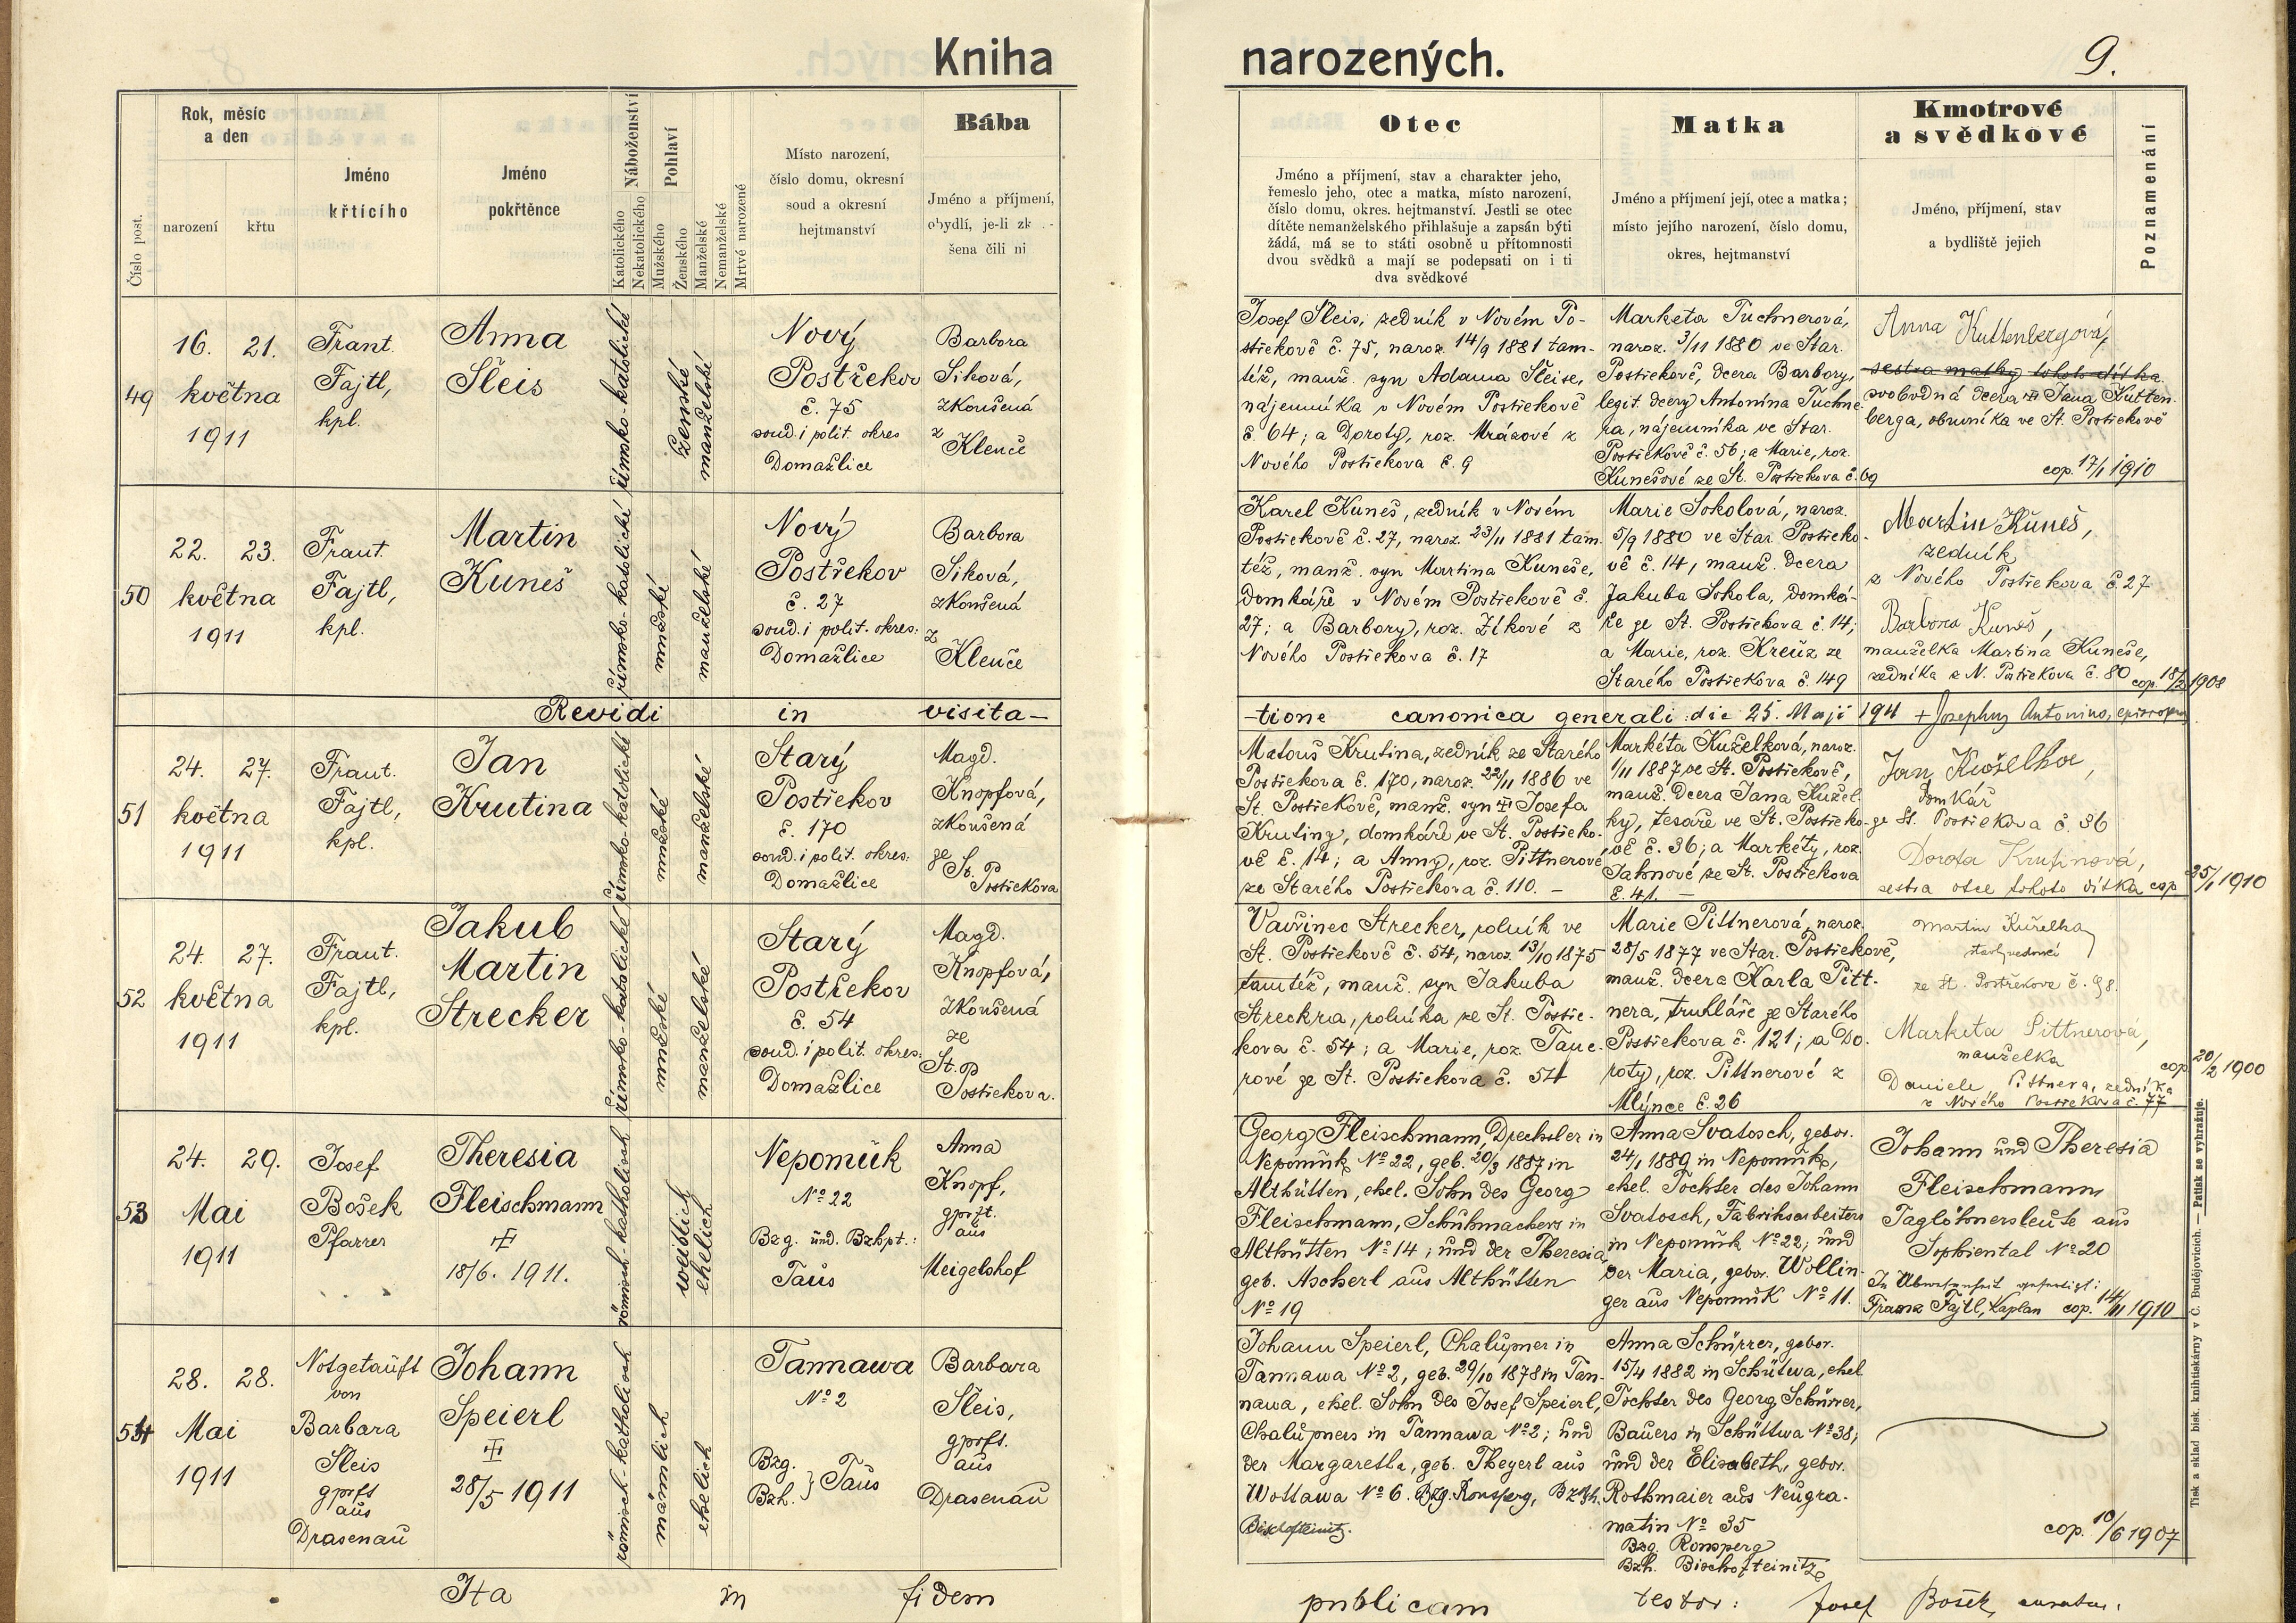 Kniha
narozených.
9.
Číslo post.
Rok, měsíc
a den
narození
křtu
Jméno
křtícího
Jméno
pokřtěnce
Náboženství
Katolického
Nekatolického
Pohlaví
Mužského
Ženského
Manželské
Nemanželské
Mrtvě narozené
Místo narození,
číslo domu, okresní
soud a okresní
hejtmanství
Bába
Jméno a příjmení,
obydlí, je-li zk
šena čili ni
Otec
Jméno a příjmení, stav a charakter jeho,
řemeslo jeho, otec a matka, místo narození,
číslo domu, okres. hejtmanství. Jestli se otec
dítěte nemanželského přihlašuje a zapsán býti
žádá, má se to státi osobně u přítomnosti
dvou svědků a mají se podepsati on i ti
dva svědkové
Matka
Jméno a příjmení její, otec a matka;
místo jejího narození, číslo domu,
okres, hejtmanství
Kmotrové
a svědkové
Jméno, příjmení, stav
a bydliště jejich
Poznamenání
49
16. 21.
května
1911
Frant.
Fajtl,
kpl.
Anna
Šleis
římsko-katolické
ženské
manželské
Nový
Postřekov
č. 75
soud. i polit. okres
Domažlice
Barbora
Siková,
zkoušená
z
Klenče
Josef Šleis, zedník v Novém Po-
střekově č. 75, naroz. 14/9 1881 tam-
též, manž. syn Adama Šleise,
nájemníka v Novém Postřekově
č. 64; a Doroty, roz. Mrázové z
Nového Postřekova č. 9
Marketa Tuchnerová,
naroz. 3/11 1880 ve Star.
Postřekově, dcera Barbory,
legit. dcery Antonína Tuchne-
ra, nájemníka ve Star.
Postřekově č. 56; a Marie, roz.
Kunešové ze St. Postřekova č. 69
Anna Kuttenbergová,
sestra matky tohoto dítka
svobodná dcera Jana Kutten-
berga, obuvníka ve St. Postřekově
cop. 17/1 1910
50
22. 23.
května
1911
Frant.
Fajtl,
kpl.
Martin
Kuneš
římsko-katolické
mužské
manželské
Nový
Postřekov
č. 27
soud. i polit. okres:
Domažlice
Barbora
Siková,
zkoušená
z
Klenče
Karel Kuneš, zedník v Novém
Postřekově č. 27, naroz. 23/11 1881 tam-
též, manž. syn Martina Kuneše,
domkáře v Novém Postřekově č.
27; a Barbory, roz. Zíkové z
Nového Postřekova č. 17
Marie Sokolová, naroz.
5/9 1880 ve Star. Postřeko-
vě č. 14, manž. dcera
Jakuba Sokola, domká-
ře ze St. Postřekova č. 14;
a Marie, roz. Kreuz ze
Starého Postřekova č. 149
Martin Kuneš,
zedník
z Nového Postřekova č. 27
Barbora Kuneš,
manželka Martina Kuneše,
zedníka z N. Postřekova č. 80
cop. 18/2 1908
Revidi in visita-
-tione canonica generali die 25. Maji 1911 + Josephus Antonius, episcopus
51
24. 27.
května
1911
Frant.
Fajtl,
kpl.
Jan
Krutina
římsko-katolické
mužské
manželské
Starý
Postřekov
č. 170
soud. i polit. okres:
Domažlice
Magd.
Knopfová,
zkoušená
ze
St.
Postřekova
Matouš Krutina, zedník ze Starého
Postřekova č. 170, naroz. 22/11 1886 ve
St. Postřekově, manž. syn Josefa
Krutiny, domkáře ve St. Postřeko-
vě č. 14; a Anny, roz. Pittnerové
ze Starého Postřekova č. 110. –
Markéta Kuželková, naroz.
1/11 1887 ve St. Postřekově,
manž. dcera Jana Kužel-
ky, tesaře ve St. Postřeko-
vě č. 36; a Markéty, roz.
Jahnové ze St. Postřekova
č. 41. –
Jan Kuželka,
domkář
ze St. Postřekova č. 36
Dorota Krutinová,
sestra otce tohoto dítka
cop. 25/1 1910
52
24. 27.
května
1911
Frant.
Fajtl,
kpl.
Jakub
Martin
Strecker
římsko-katolické
mužské
manželské
Starý
Postřekov
č. 54
soud. i polit. okres:
Domažlice
Magd.
Knopfová,
zkoušená
ze
St.
Postřekova.
Vavřinec Strecker, rolník ve
St. Postřekově č. 54, naroz. 13/10 1875
tamtéž, manž. syn Jakuba
Streckra, rolníka ze St. Postře-
kova č. 54; a Marie, roz. Tauc-
rové ze St. Postřekova č. 54
Marie Pittnerová, naroz.
28/5 1877 ve Star. Postřekově,
manž. dcera Karla Pitt-
nera, truhláře ze Starého
Postřekova č. 121; a Do-
roty, roz. Pittnerové z
Mlýnce č. 26
Martin Kuželka
ze St. Postřekova č. 98.
Marketa Pittnerová,
manželka
Daniele Pittnera, zedníka
z Nového Postřekova č. 77
cop. 20/2 1900
53
24. 29.
Mai
1911
Josef
Bošek
Pfarrer
Theresia
Fleischmann
18/6. 1911.
römisch-katholisch
weiblich
ehelich
Nepomuk
No 22
Bzg. und. Bzhpt.:
Taus
Anna
Knopf,
gprft.
aus
Meigelshof
Georg Fleischmann, Drechsler in
Nepomuk No 22, geb. 20/3 1887 in
Althütten, ehel. Sohn des Georg
Fleischmann, Schuhmachers in
Althütten No 14; und der Theresia
geb. Ascherl aus Althütten
No 19
Anna Svatosch, gebor.
24/1 1889 in Nepomuk,
ehel. Tochter des Johann
Svatosch, Fabriksarbeiters
in Nepomuk No 22; und
der Maria, gebor. Wollin-
ger aus Nepomuk No 11.
Johann und Theresia
Fleischmann
Taglöhnersleute aus
Sophiental No 20
In Abwesenheit gefertigt:
Franz Fajtl, Kaplan cop. 14/11 1910
54
28. 28.
Mai
1911
Notgetauft
von
Barbara
Sleis
gprft
aus
Drasenau
Johann
Speierl
28/5 1911
römisch-katholisch
männlich
ehelich
Tannawa
No 2
Bzg.
Bzh. } Taus
Barbara
Sleis,
gprft.
aus
Drasenau
Johann Speierl, Chalupner in
Tannawa No 2, geb. 29/10 1878 in Tan-
nawa, ehel. Sohn des Josef Speierl,
Chalupners in Tannawa No 2; und
der Margaretha, geb. Theyerl aus
Wottawa No 6. Bzg. Ronsperg, Bzh.
Bischofteinitz.
Anna Schürrer, gebor.
15/4 1882 in Schüttwa, ehel.
Tochter des Georg Schürrer,
Bauers in Schüttwa No 38;
und der Elisabeth, gebor.
Rothmaier aus Neugra-
matin No 35
Bzg. Ronsperg
Bzh. Bischofteinitz
cop. 10/6 1907
Ita in fidem
publicam testor: Josef Bošek, curatus.
Tisk a sklad bisk. knihtiskárny v Č. Budějovicích. — Patisk se vyhražuje.